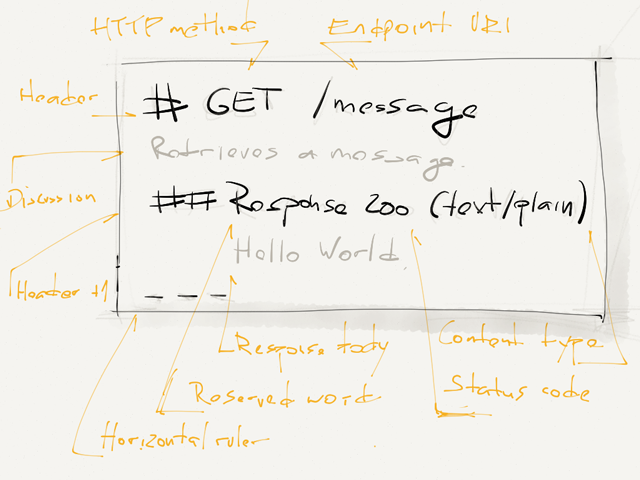 HTTP method Endpoint URI
Header
# GET /message
Retrieves a message.
Discussion
## Response 200 (text/plain)
Hello World.
Header +1
---
Response body
Content type
Reserved word
Status code
Horizontal ruler